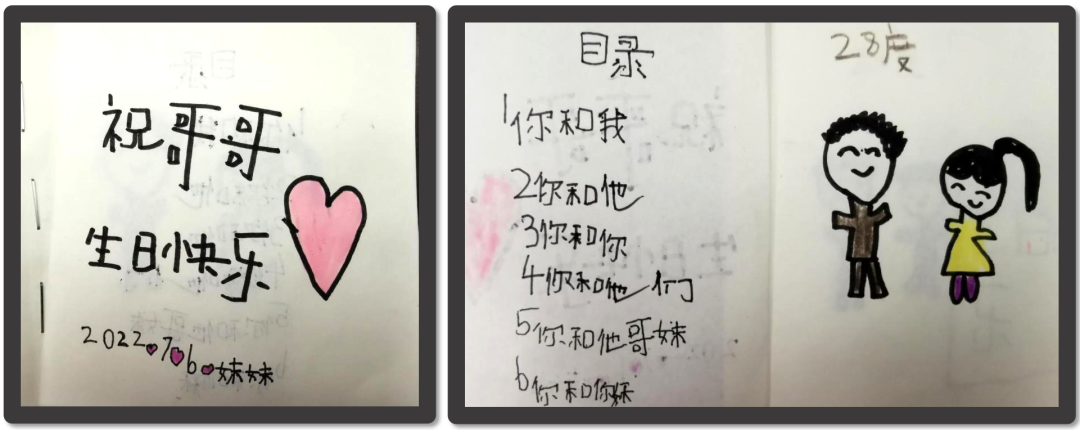 祝哥哥
生日快乐
2022.7.6.妹妹
目录
1你和我
2你和他
3你和你
4你和他们
5你和他哥妹
6你和你妹
28度